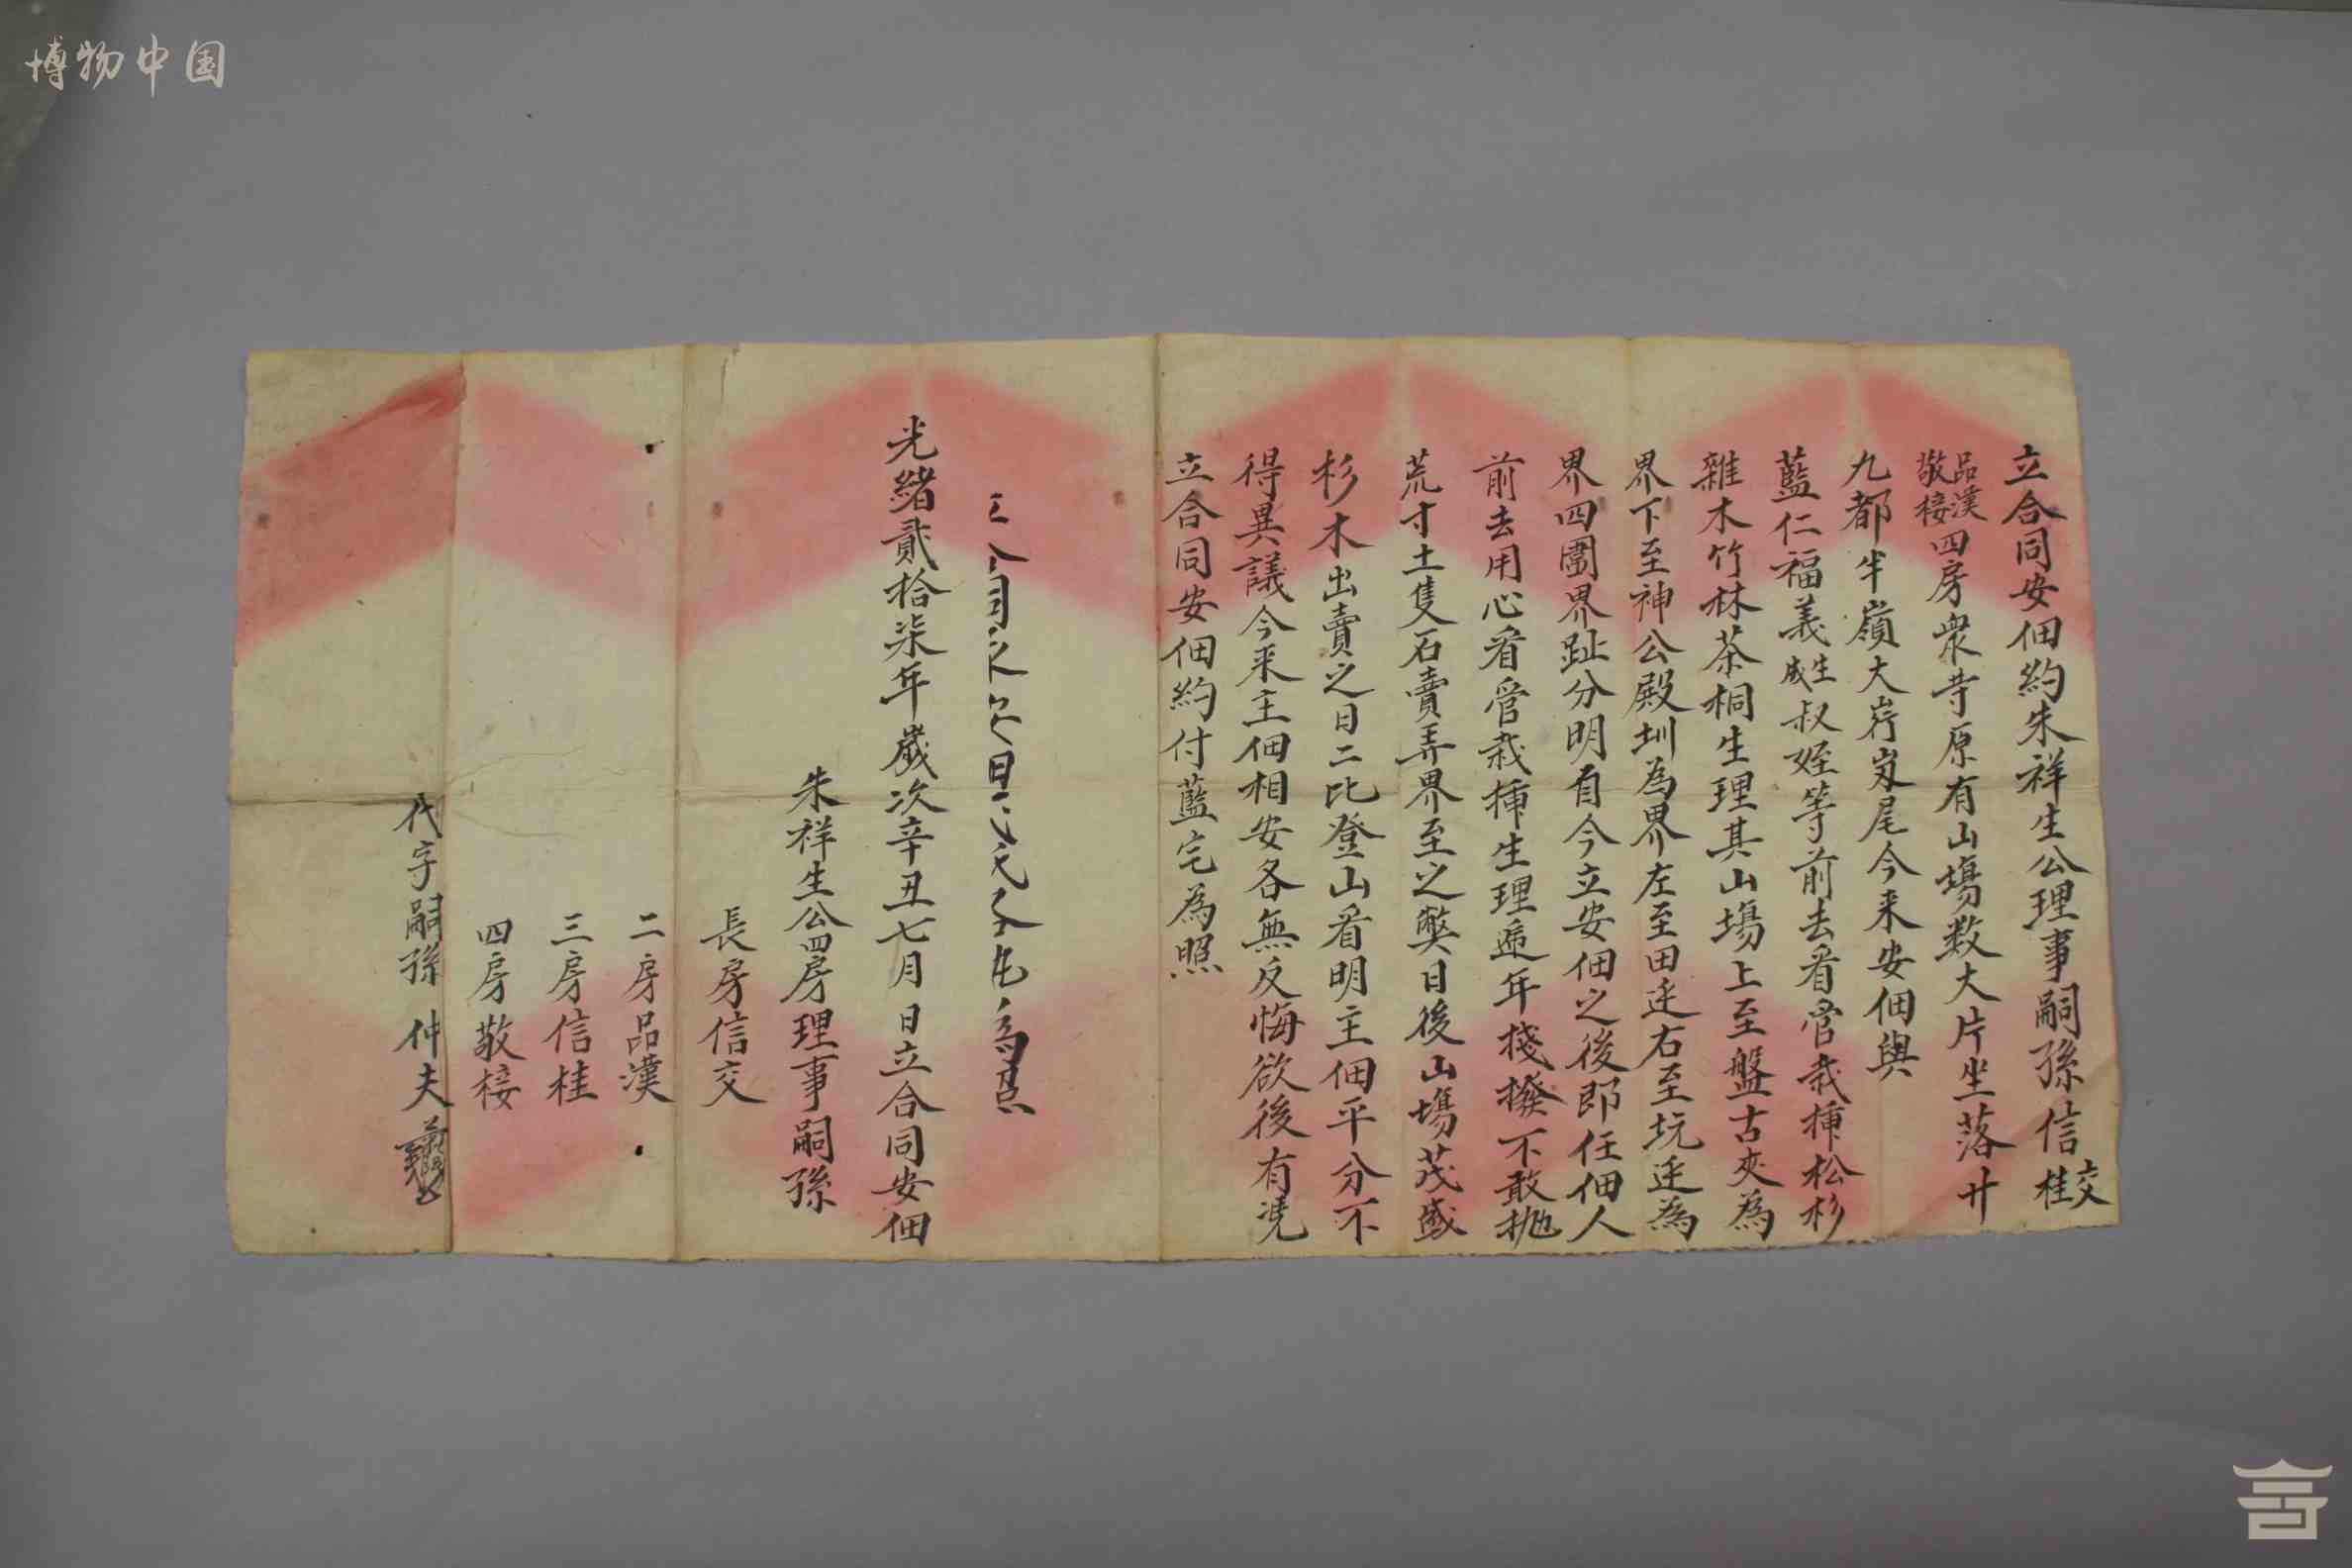 博物中国
立合同安佃約朱祥生公理事嗣孫信交桂
品漢敬接四房衆等原有山塲数大片坐落廿
九都半嶺大岸崀尾今来安佃與
藍仁福義生成叔姪等前去看管栽揷松杉
雜木竹林茶桐生理其山塲上至盤古夾為
界下至神公殿圳為界左至田迋右至坑迋為
界四圍界趾分明自今立安佃之後即任佃人
前去用心看管栽揷生理遞年撥不敢抛
荒寸土隻石賣弄界至之獘日後山塲茂盛
杉木出賣之日二比登山看明主佃平分不
得異議今来主佃相安各無反悔欲後有凴
立合同安佃約付藍宅為照
光緒貳拾柒年歲次辛丑七月日立合同安佃
朱祥生公四房理事嗣孫
長房信交
二房品漢
三房信桂
四房敬接
代字嗣孫仲夫